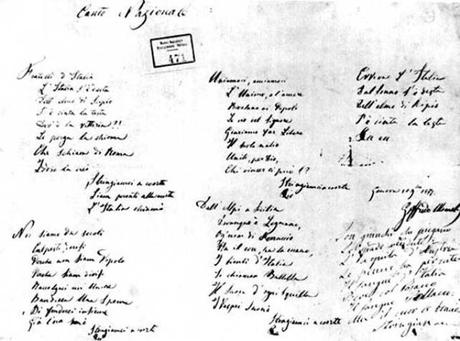 Canto Nazionale
471
Fratelli d'Italia
L'Italia s'è desta
Dell'elmo di Scipio
S'è cinta la testa
Dov'è la vittoria?!
Le porga la chioma
Che schiava di Roma
Iddio la creò
Stringiamci a coorte
Siam pronti alla morte
L'Italia chiamò
Noi siamo da secoli
Calpesti, derisi
Perché non siam Popolo
Perché siam divisi
Raccolgaci un'Unica
Bandiera Una Speme
Di fonderci insieme
Già l'ora suonò
Stringiamci a coorte
Uniamoci, amiamoci
L'Unione, e l'amore
Rivelano ai Popoli
Le vie del Signore
Giuriamo far Libero
Il suolo natio
Uniti, per Dio,
Chi vincer ci può!?
Stringiamci a coorte
Dall'Alpi a Sicilia
Dovunque è Legnano,
Ogn'uom di Ferruccio
Ha il core, ha la mano,
I bimbi d'Italia
Si chiaman Balilla
Il suon d'ogni squilla
I Vespri suonò
Stringiamci a coorte
Evviva l'Italia
Dal sonno s'è desta
Dell'elmo di Scipio
S'è cinta la testa
Son giunchi che piegano
Le spade vendute
L'Aquila d'Austria
Le penne ha perdute
Il sangue d'Italia